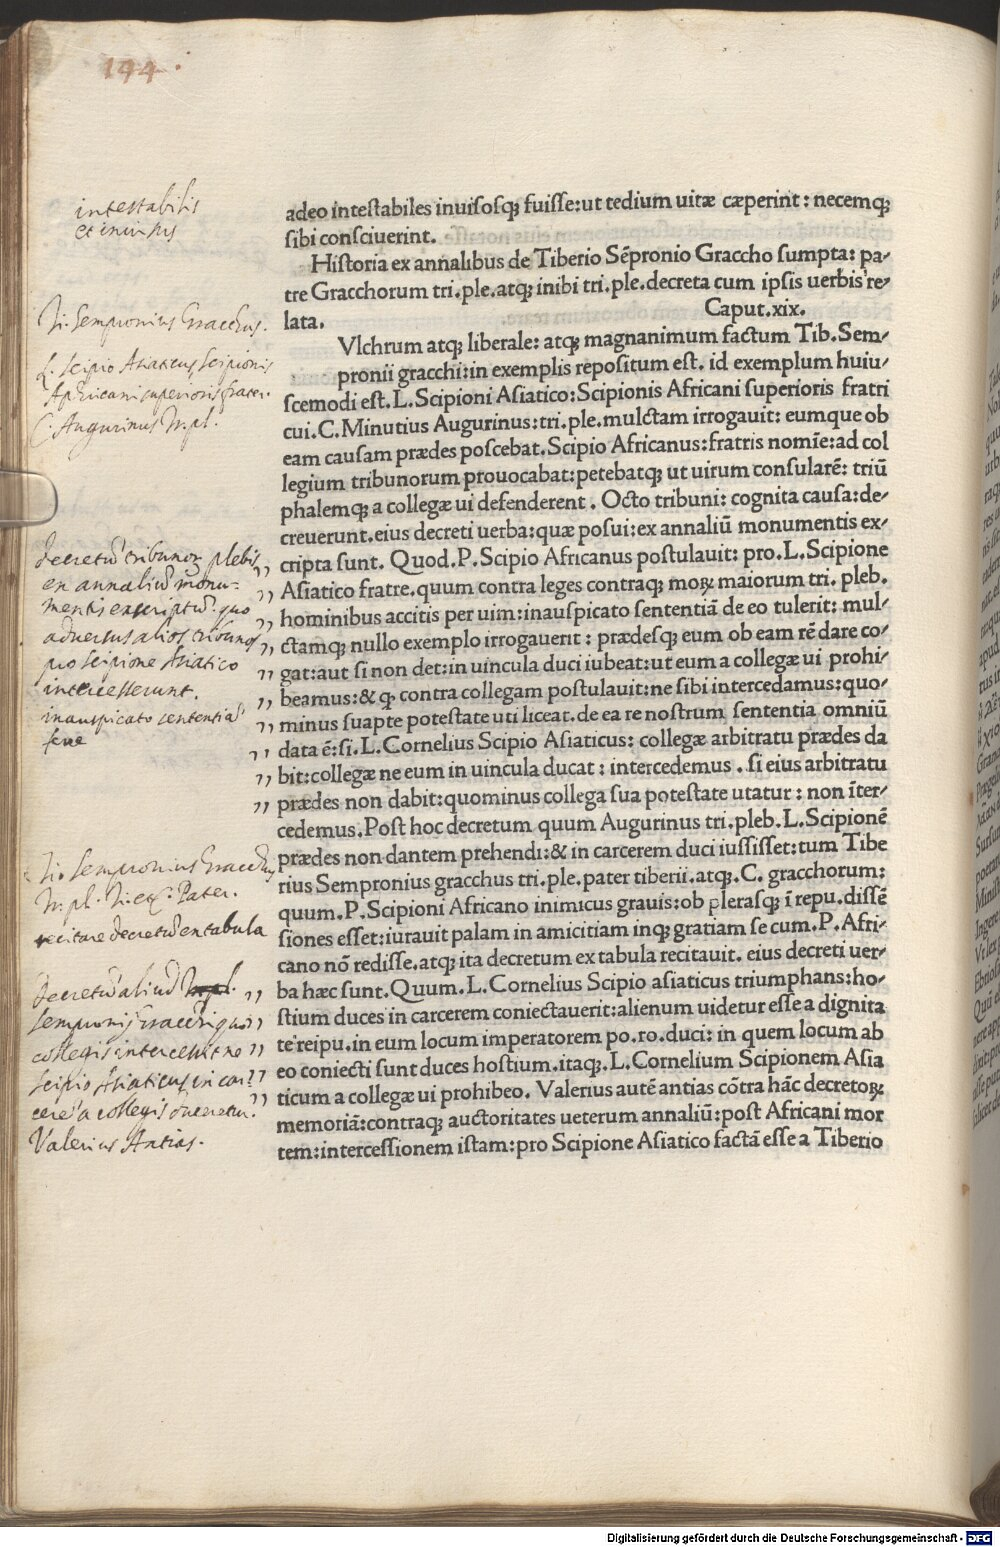 144.
intestabilis
et inuisus
adeo intestabiles inuisosq; fuisse:ut tedium uitæ cæperint : necemq;
sibi consciuerint.
Historia ex annalibus de Tiberio Sẽpronio Graccho sumpta: pa-
tre Gracchorum tri.ple.atq; inibi tri.ple.decreta cum ipsis uerbis re-
lata. Caput.xix.
VLchrum atq; liberale: atq; magnanimum factum Tib.Sem-
pronii gracchi:in exemplis repositum est. id exemplum huiu-
scemodi est.L.Scipioni Asiatico:Scipionis Africani superioris fratri
cui.C.Minutius Augurinus:tri.ple.mulctam irrogauit: eumque ob
eam causam prædes poscebat.Scipio Africanus:fratris nomĩe:ad col
legium tribunorum prouocabat:petebatq; ut uirum consularẽ: triũ
phalemq; a collegæ ui defenderent . Octo tribuni: cognita causa:de-
creuerunt.eius decreti uerba:quæ posui:ex annaliũ monumentis ex-
cripta sunt. Quod.P.Scipio Africanus postulauit: pro.L.Scipione
Asiatico fratre.quum contra leges contraq; moꝝ maiorum tri. pleb.
hominibus accitis per uim:inauspicato sententiã de eo tulerit: mul-
ctamq; nullo exemplo irrogauerit : prædesq; eum ob eam rẽ dare co-
gat:aut si non det:in uincula duci iubeat:ut eum a collegæ ui prohi-
beamus:& ꝙ contra collegam postulauit:ne sibi intercedamus:quo-
minus suapte potestate uti liceat.de ea re nostrum sententia omniũ
data ẽ:si.L.Cornelius Scipio Asiaticus: collegæ arbitratu prædes da
bit:collegæ ne eum in uincula ducat : intercedemus . si eius arbitratu
prædes non dabit:quominus collega sua potestate utatur : non ĩter-
cedemus.Post hoc decretum quum Augurinus tri.pleb.L.Scipionẽ
prædes non dantem prehendi:& in carcerem duci iussisset:tum Tibe
rius Sempronius gracchus tri.ple.pater tiberii.atq;.C. gracchorum:
quum.P.Scipioni Africano inimicus grauis:ob plerasq; ĩ repu.dissẽ
siones esset:iurauit palam in amicitiam inq; gratiam se cum.P.Afri-
cano nõ redisse.atq; ita decretum ex tabula recitauit. eius decreti uer-
ba hæc sunt.Quum.L.Cornelius Scipio asiaticus triumphans:ho-
stium duces in carcerem coniectauerit:alienum uidetur esse a dignita
te reipu.in eum locum imperatorem po.ro.duci: in quem locum ab
eo coniecti sunt duces hostium.itaq;.L.Cornelium Scipionem Asia
ticum a collegæ ui prohibeo. Valerius autẽ antias cõtra hãc decretoꝝ
memoriã:contraq; auctoritates ueterum annaliũ:post Africani mor
tem:intercessionem istam:pro Scipione Asiatico factã esse a Tiberio
Ti. Sempronius Gracchus.
L. Scipio Asiaticus Scipionis
Aphricani superioris frater.
C. Augurinus Tr. pl.
decretũ tribunoꝝ plebis
ex annaliũ monu-
mentis excriptũ. quo
aduersus alios tribunos
pro Scipione Asiatico
intercesserunt.
inauspicato sententiã
ferre
Ti. Sempronius Gracchus
Tr. pl. Pater.
recitare decretũ ex tabula
Decretũ aliud
Sempronij Gracchi quo
collegis intercessit ne
Scipio Asiaticus in car-
cerẽ a collegis duceretur.
Valerius Antias.
Digitalisierung gefördert durch die Deutsche Forschungsgemeinschaft - DFG